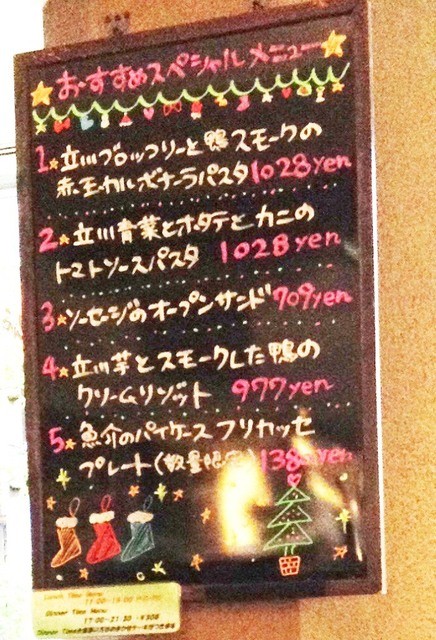 おすすめスペシャルメニュー
1 立川ブロッコリーと鴨スモークの
赤玉カルボナーラパスタ 1028yen
2 立川青菜とホタテとカニの
トマトソースパスタ 1028yen
3 ソーセージのオープンサンド 709yen
4 立川芋とスモークした鴨の
クリームリゾット 977yen
5 魚介のパイケースフリカッセ
プレート(数量限定) 138
Lunch Time Menu
Dinner Time Menu
17:00-21:30
Dinner Time